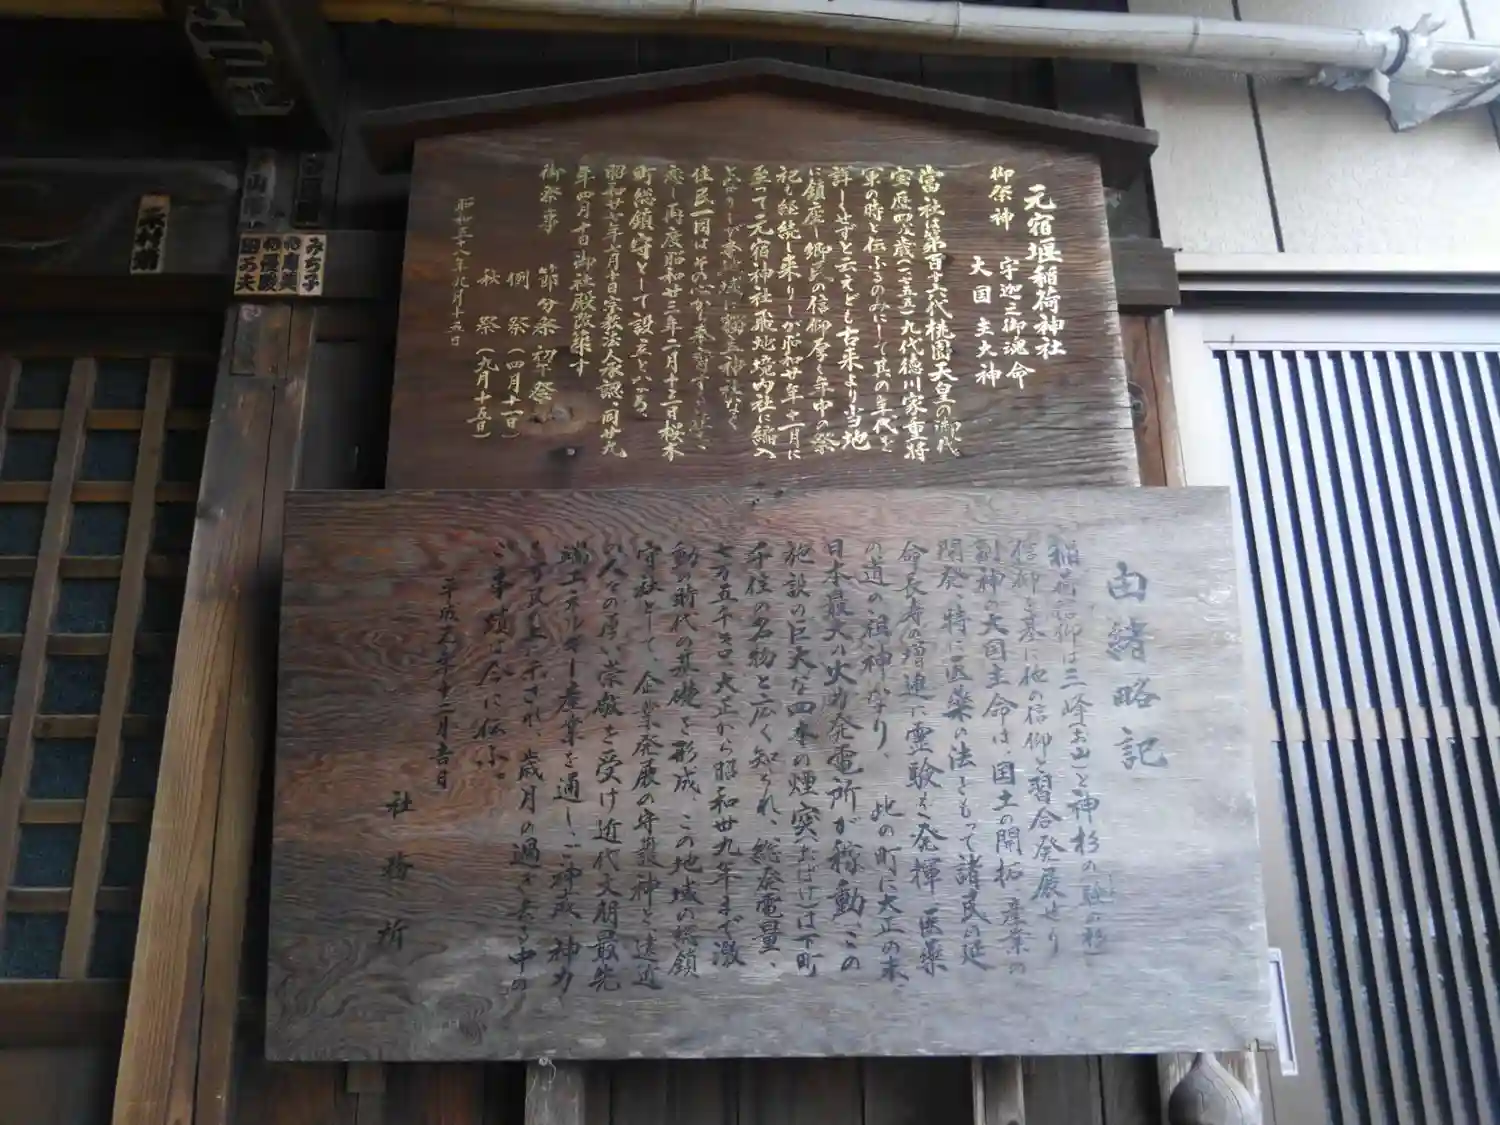 元宿堰稲荷神社
御祭神 宇迦之御魂命
大国主大神
當社は第百十六代桃園天皇の御代
宝暦四及歳(一七五五)九代徳川家重将
軍の時と伝ふるのみにして其の年代を
詳しせずと云えども古来より当地
に鎮座し郷民の信仰厚く年中の祭
祀も経続し来りしが昭和廿年十一月に
至って元宿神社飛地境内社に編入
住民一同はその心から奉斎する
再度昭和廿三年二月十三日桜木
町総鎮守として設立
昭和廿七年八月十日宗教法人承認、同廿九
年四月十日御社殿改築す
御祭事
節分祭 初午祭
例祭(四月十一日)
秋祭(九月十五日)
昭和三十八年九月十五日
由緒略記
稲荷信仰は三峰(お山)と神杉の(験の杉)
信仰を基に他の信仰と習合発展せり
副神の大国主命は、国土の開拓、産業の
開発、特に医薬の法をもって諸民の延
命長寿の増進に霊験を発揮、医薬
の道の祖神なり、 此の町に大正の末、
日本最大の火力発電所が稼動、この
施設の巨大な四本の煙突(おばけ)は下町
千住の名物と広く知られ、総発電量、
七万五千キロ大正から昭和卅九年まで激
動の時代の基礎を形成、この地域の総鎮
守社として、企業発展の守護神と遠近
の人々の厚い崇敬を受け近代文明最先
端エネルギー産業を通し、ご神威、神力
を万民上に示され、歳月の過ぎ去る中の
ご事蹟は今に伝ふ。
平成元年十二月吉日
社務所
みち子